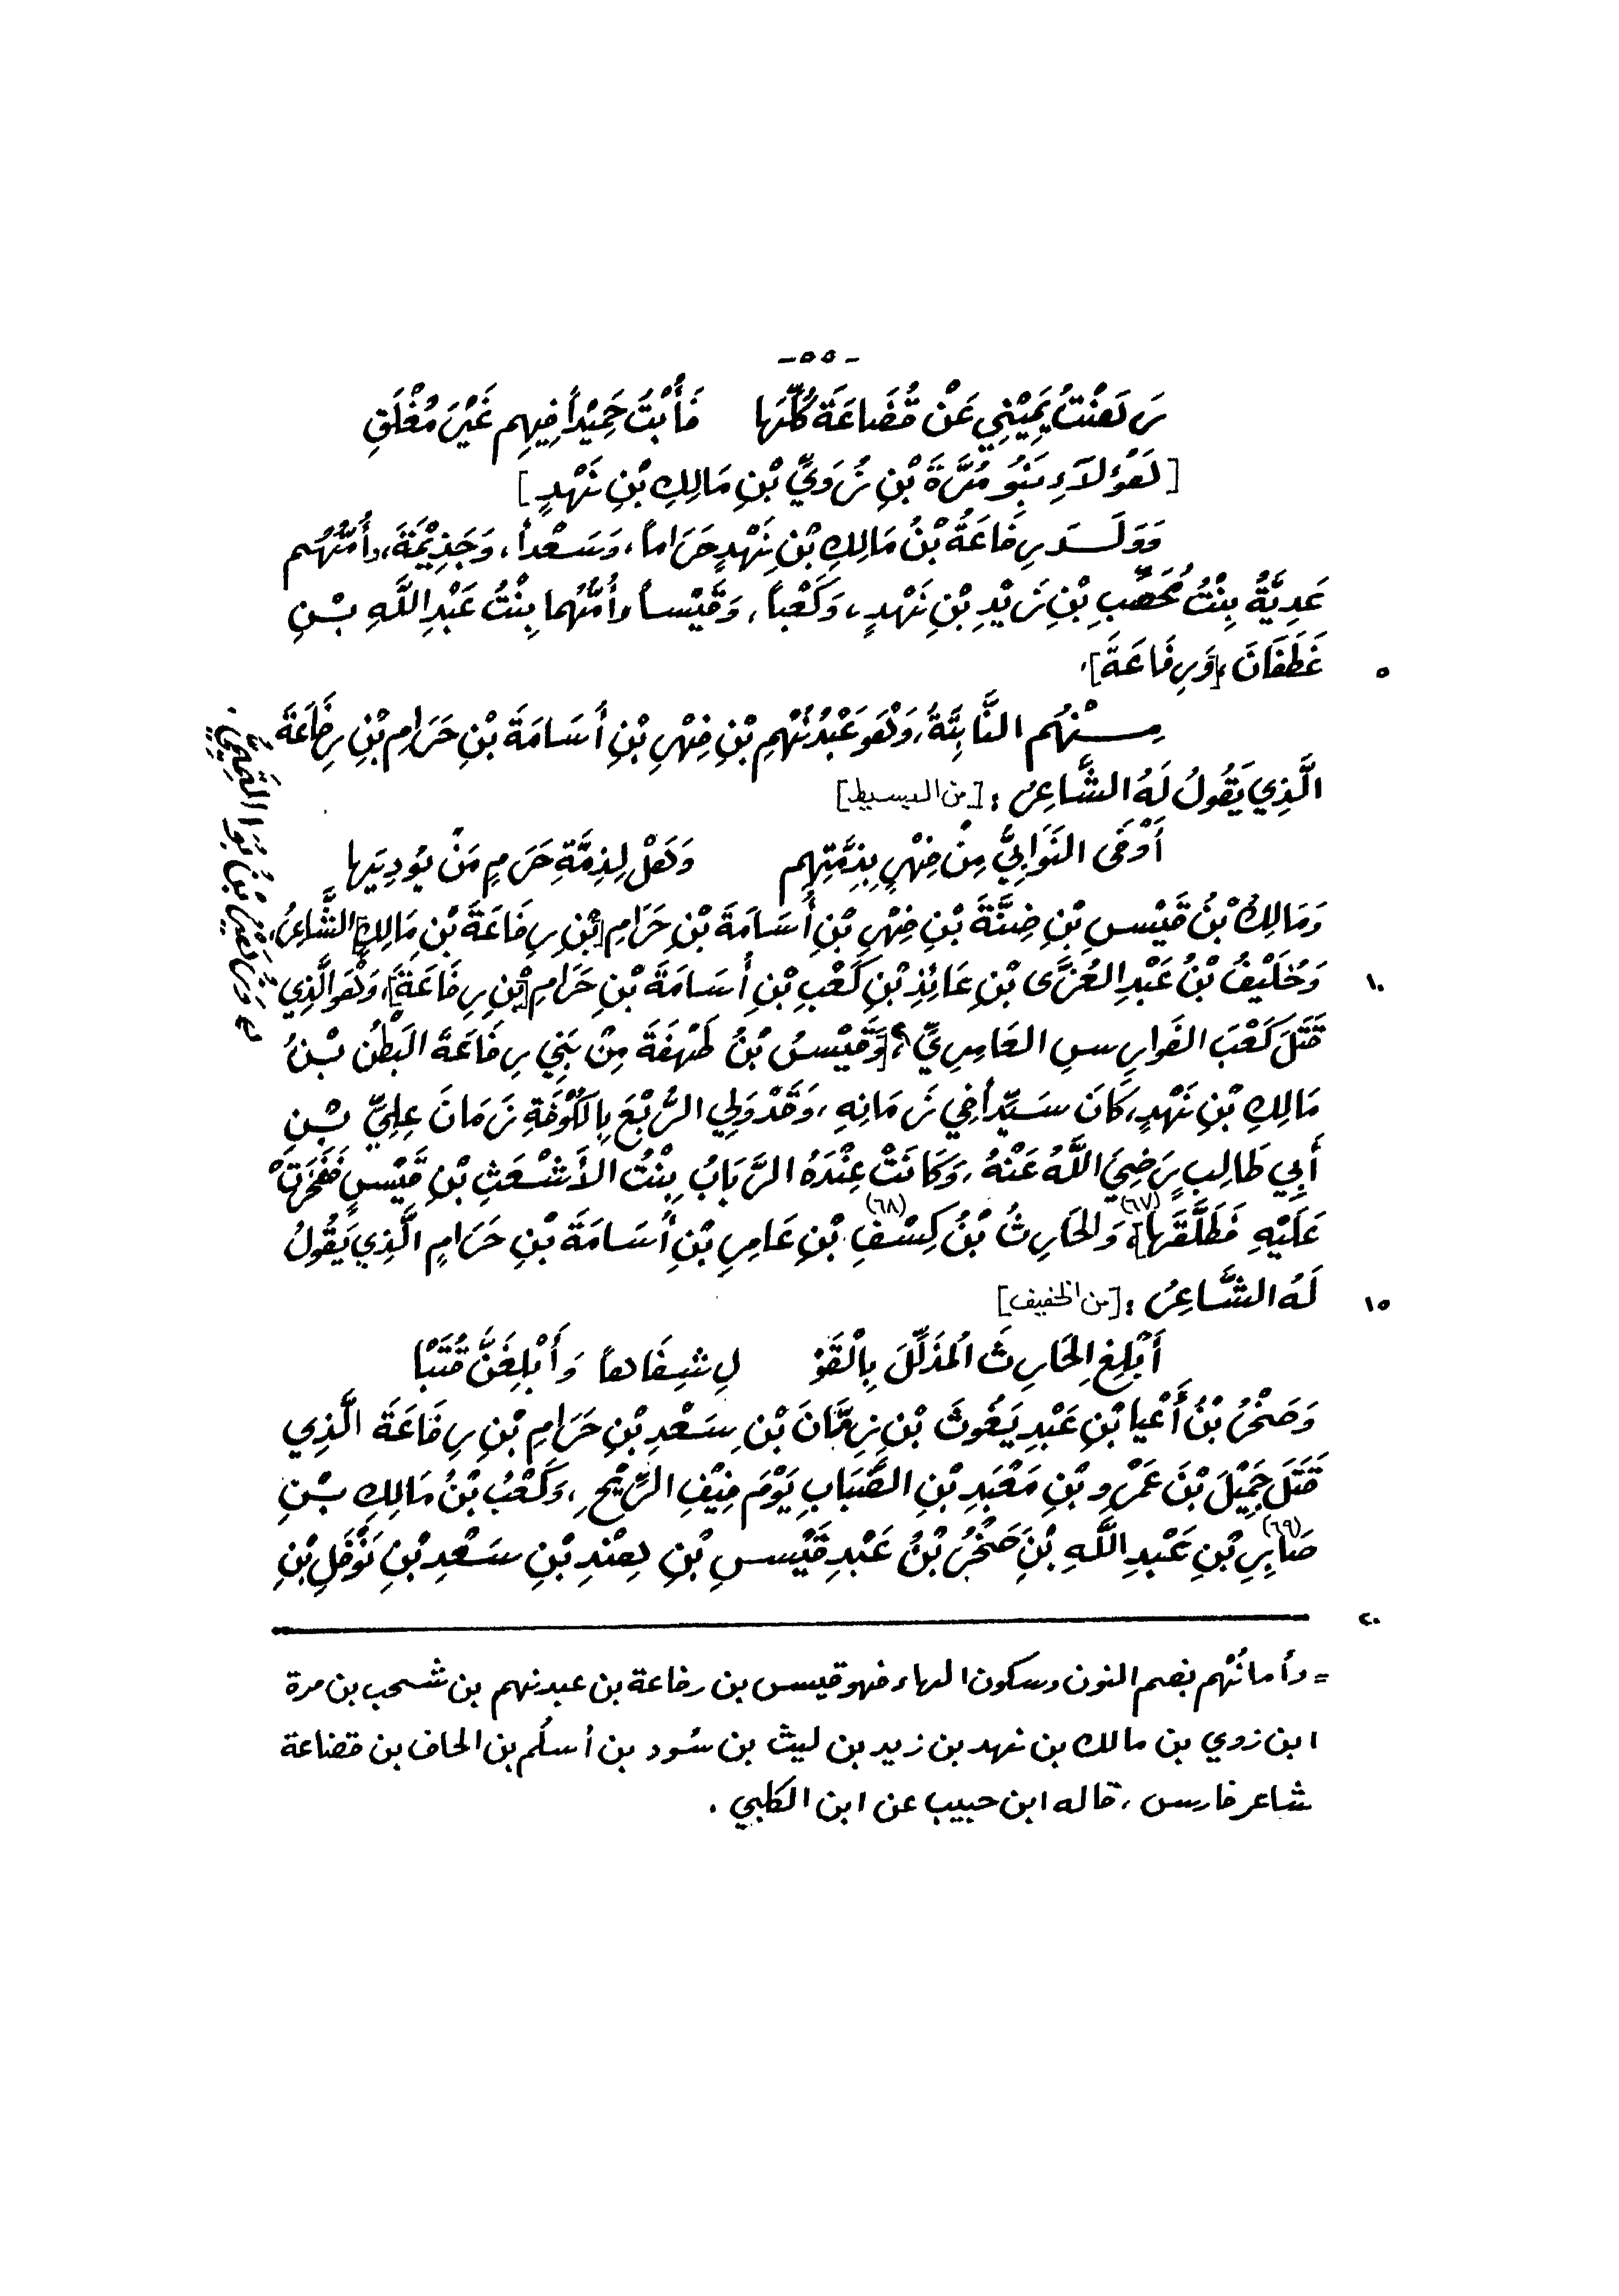 -٥٥-
رَهَنْتُ يَمِيْنِي عَنْ قُضَاعَةَ كُلِّهَا فَأُبْتَ حَمِيْداً فِيهِم غَيْرَ مُغْلَقِ
[هَؤُلَاءِ بَنُو مُرَّةَ بْنِ زُوَيِّ بْنِ مَالِكِ بْنِ نَهْدٍ]
وَوَلَدَ رِفَاعَةُ بْنُ مَالِكِ بْنِ نَهْدٍ حَرَاماً، وَسَعْداً، وَجَذِيْمَةَ، وأُمُّهُم
عَدِيَّةُ بِنْتُ مُحَصِّبِ بْنِ زَيْدِ بْنِ نَهْدٍ، وَكَعْباً، وَقَيْساً وأُمُّهُما بِنْتُ عَبْدِ اللَّهِ بْنِ
غَطَفَانَ، [وَرِفَاعَةَ].
٥
مِنْهُم النَّابِتَةُ، وَهُوَ عَبْدُ نُهْمِ بْنِ فِهْرِ بْنِ أُسَامَةَ بْنِ حَرَامِ بْنِ رِفَاعَةَ
الَّذِي يَقُولُ لَهُ الشَّاعِرُ: [من البسيط]
أَوْفَى النَّوَابِيُّ مِنْ فِهْرٍ بِذِمَّتِهِم وَهَلْ لِذِمَّةِ حَرَمٍ مَنْ يُودِيَها
وَمَالِكُ بْنُ قَيْسِ بْنِ ضِنَّةَ بْنِ فِهْرِ بْنِ أُسَامَةَ بْنِ حَرَامِ [بْنِ رِفَاعَةَ بْنِ مَالِكٍ] الشَّاعِرُ،
وَخُلَيْفُ بْنُ عَبْدِ العُزَّى بْنِ عَائِذِ بْنِ كَعْبِ بْنِ أُسَامَةَ بْنِ حَرَامِ [بْنِ رِفَاعَةَ]، وَهُوَ الَّذِي
١٠
قَتَلَ كَعْبَ الفَوارِسِ العَامِرِيَّ، [وَقَيْسُ بْنُ طَهْفَةَ مِنْ بَنِي رِفَاعَةَ البَطْنُ بْنُ
مَالِكِ بْنِ نَهْدٍ، كَانَ سَيِّداً في زَمَانِهِ، وَقَدْ وَلِي الرُّبْعَ بِالكُوْفَةِ زَمَانَ عِلِيِّ بْنِ
أَبِي طَالِبٍ رَضِيَ اللَّهُ عَنْهُ، وَكَانَتْ عِنْدَهُ الرَّبَابُ بِنْتُ الأَشْعَثِ بْنِ قَيْسٍ فَفَخَرَتْ
عَلَيْهِ فَطَلَّقَهَا](٦٧)، وَالحَارِثُ بْنُ كِسْفِ(٦٨) بْنِ عَامِرِ بْنِ أُسَامَةَ بْنِ حَرَامٍ الَّذِي يَقُولُ
لَهُ الشَّاعِرُ: [من الخفيف]
١٥
أَبْلِغِ الحَارِثَ المُذَلِّلَ بِالْقَوْ لِ شِفَاهاً وَأَبْلِغَنَّ قُتَبْا
وَصَخْرُ بْنُ أَعْيا بْنِ عَبْدِ يَغُوثَ بْنِ زِمَّانَ بْنِ سَعْدِ بْنِ حَرَامِ بْنِ رِفَاعَةَ الَّذِي
قَتَلَ جَمِيْلَ بْنَ عَمْرِو بْنِ مَعْبَدِ بْنِ الضَّبَابِ يَوْمَ فِيْفِ الرِّيْحِ، وَكَعْبُ بْنُ مَالِكِ بْنِ
صَابِرِ(٦٩) بْنِ عَبْدِ اللَّهِ بْنِ صَخْرُ بْنُ عَبْدِ قَيْسِ بْنِ هِنْدِ بْنِ سَعْدِ بْنِ نَوْفَلِ بْنِ
٢٠
= وأما نُهْم بضم النون وسكون الهاء فهو قيس بن رفاعة بن عبد نهم بن شحب بن مرة
ابن زوي بن مالك بن نهد بن زيد بن ليث بن سُود بن أسلُم بن الحاف بن قضاعة
شاعر فارس، قاله ابن حبيب عن ابن الكلبي.